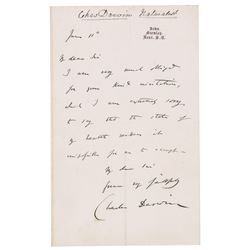 Chas Darwin Naturalist
Down,
Bromley,
Kent. S.E.
June 11th
My dear Sir
I am very much obliged
for your kind invitation,
but I am extremely sorry
to say that the state of
my health makes it
impossible for me to accept
My dear Sir
yours very faithfully
Charles Darwin